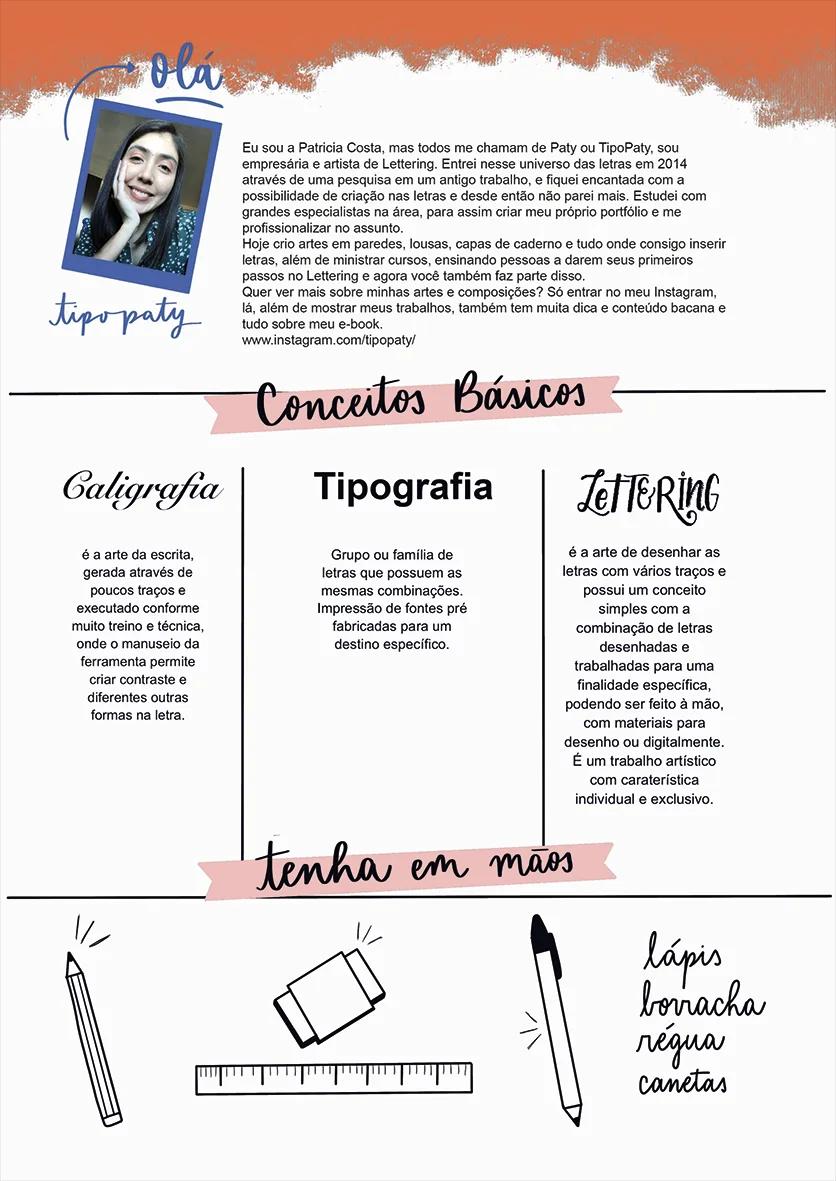 Olá
tipopaty
Eu sou a Patricia Costa, mas todos me chamam de Paty ou TipoPaty, sou
empresária e artista de Lettering. Entrei nesse universo das letras em 2014
através de uma pesquisa em um antigo trabalho, e fiquei encantada com a
possibilidade de criação nas letras e desde então não parei mais. Estudei com
grandes especialistas na área, para assim criar meu próprio portfólio e me
profissionalizar no assunto.
Hoje crio artes em paredes, lousas, capas de caderno e tudo onde consigo inserir
letras, além de ministrar cursos, ensinando pessoas a darem seus primeiros
passos no Lettering e agora você também faz parte disso.
Quer ver mais sobre minhas artes e composições? Só entrar no meu Instagram,
lá, além de mostrar meus trabalhos, também tem muita dica e conteúdo bacana e
tudo sobre meu e-book.
www.instagram.com/tipopaty/
Conceitos Básicos
Caligrafia
é a arte da escrita,
gerada através de
poucos traços e
executado conforme
muito treino e técnica,
onde o manuseio da
ferramenta permite
criar contraste e
diferentes outras
formas na letra.
Tipografia
Grupo ou família de
letras que possuem as
mesmas combinações.
Impressão de fontes pré
fabricadas para um
destino específico.
LETTERING
é a arte de desenhar as
letras com vários traços e
possui um conceito
simples com a
combinação de letras
desenhadas e
trabalhadas para uma
finalidade específica,
podendo ser feito à mão,
com materiais para
desenho ou digitalmente.
É um trabalho artístico
com caraterística
individual e exclusivo.
tenha em mãos
lápis
borracha
régua
canetas